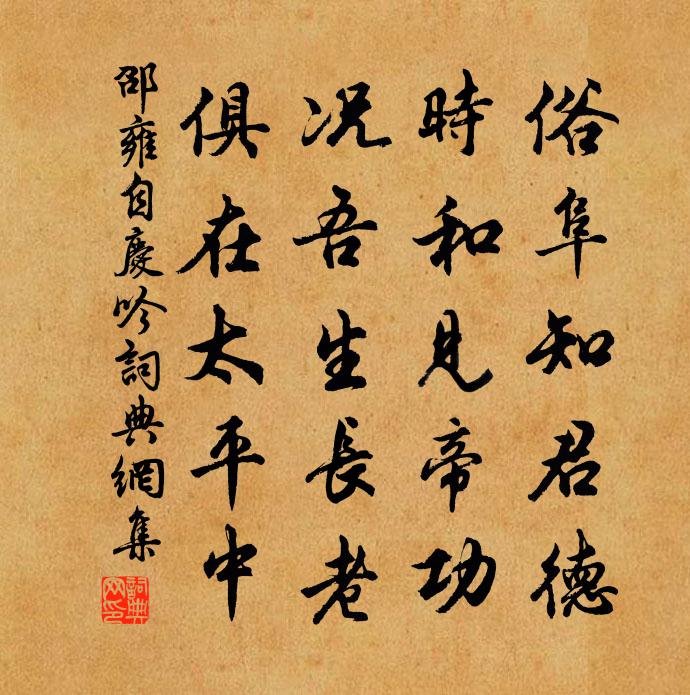 俗阜知君德
時和見帝功
況吾生長老
俱在太平中
邵雍自慶吟詞典網集
詞典網印